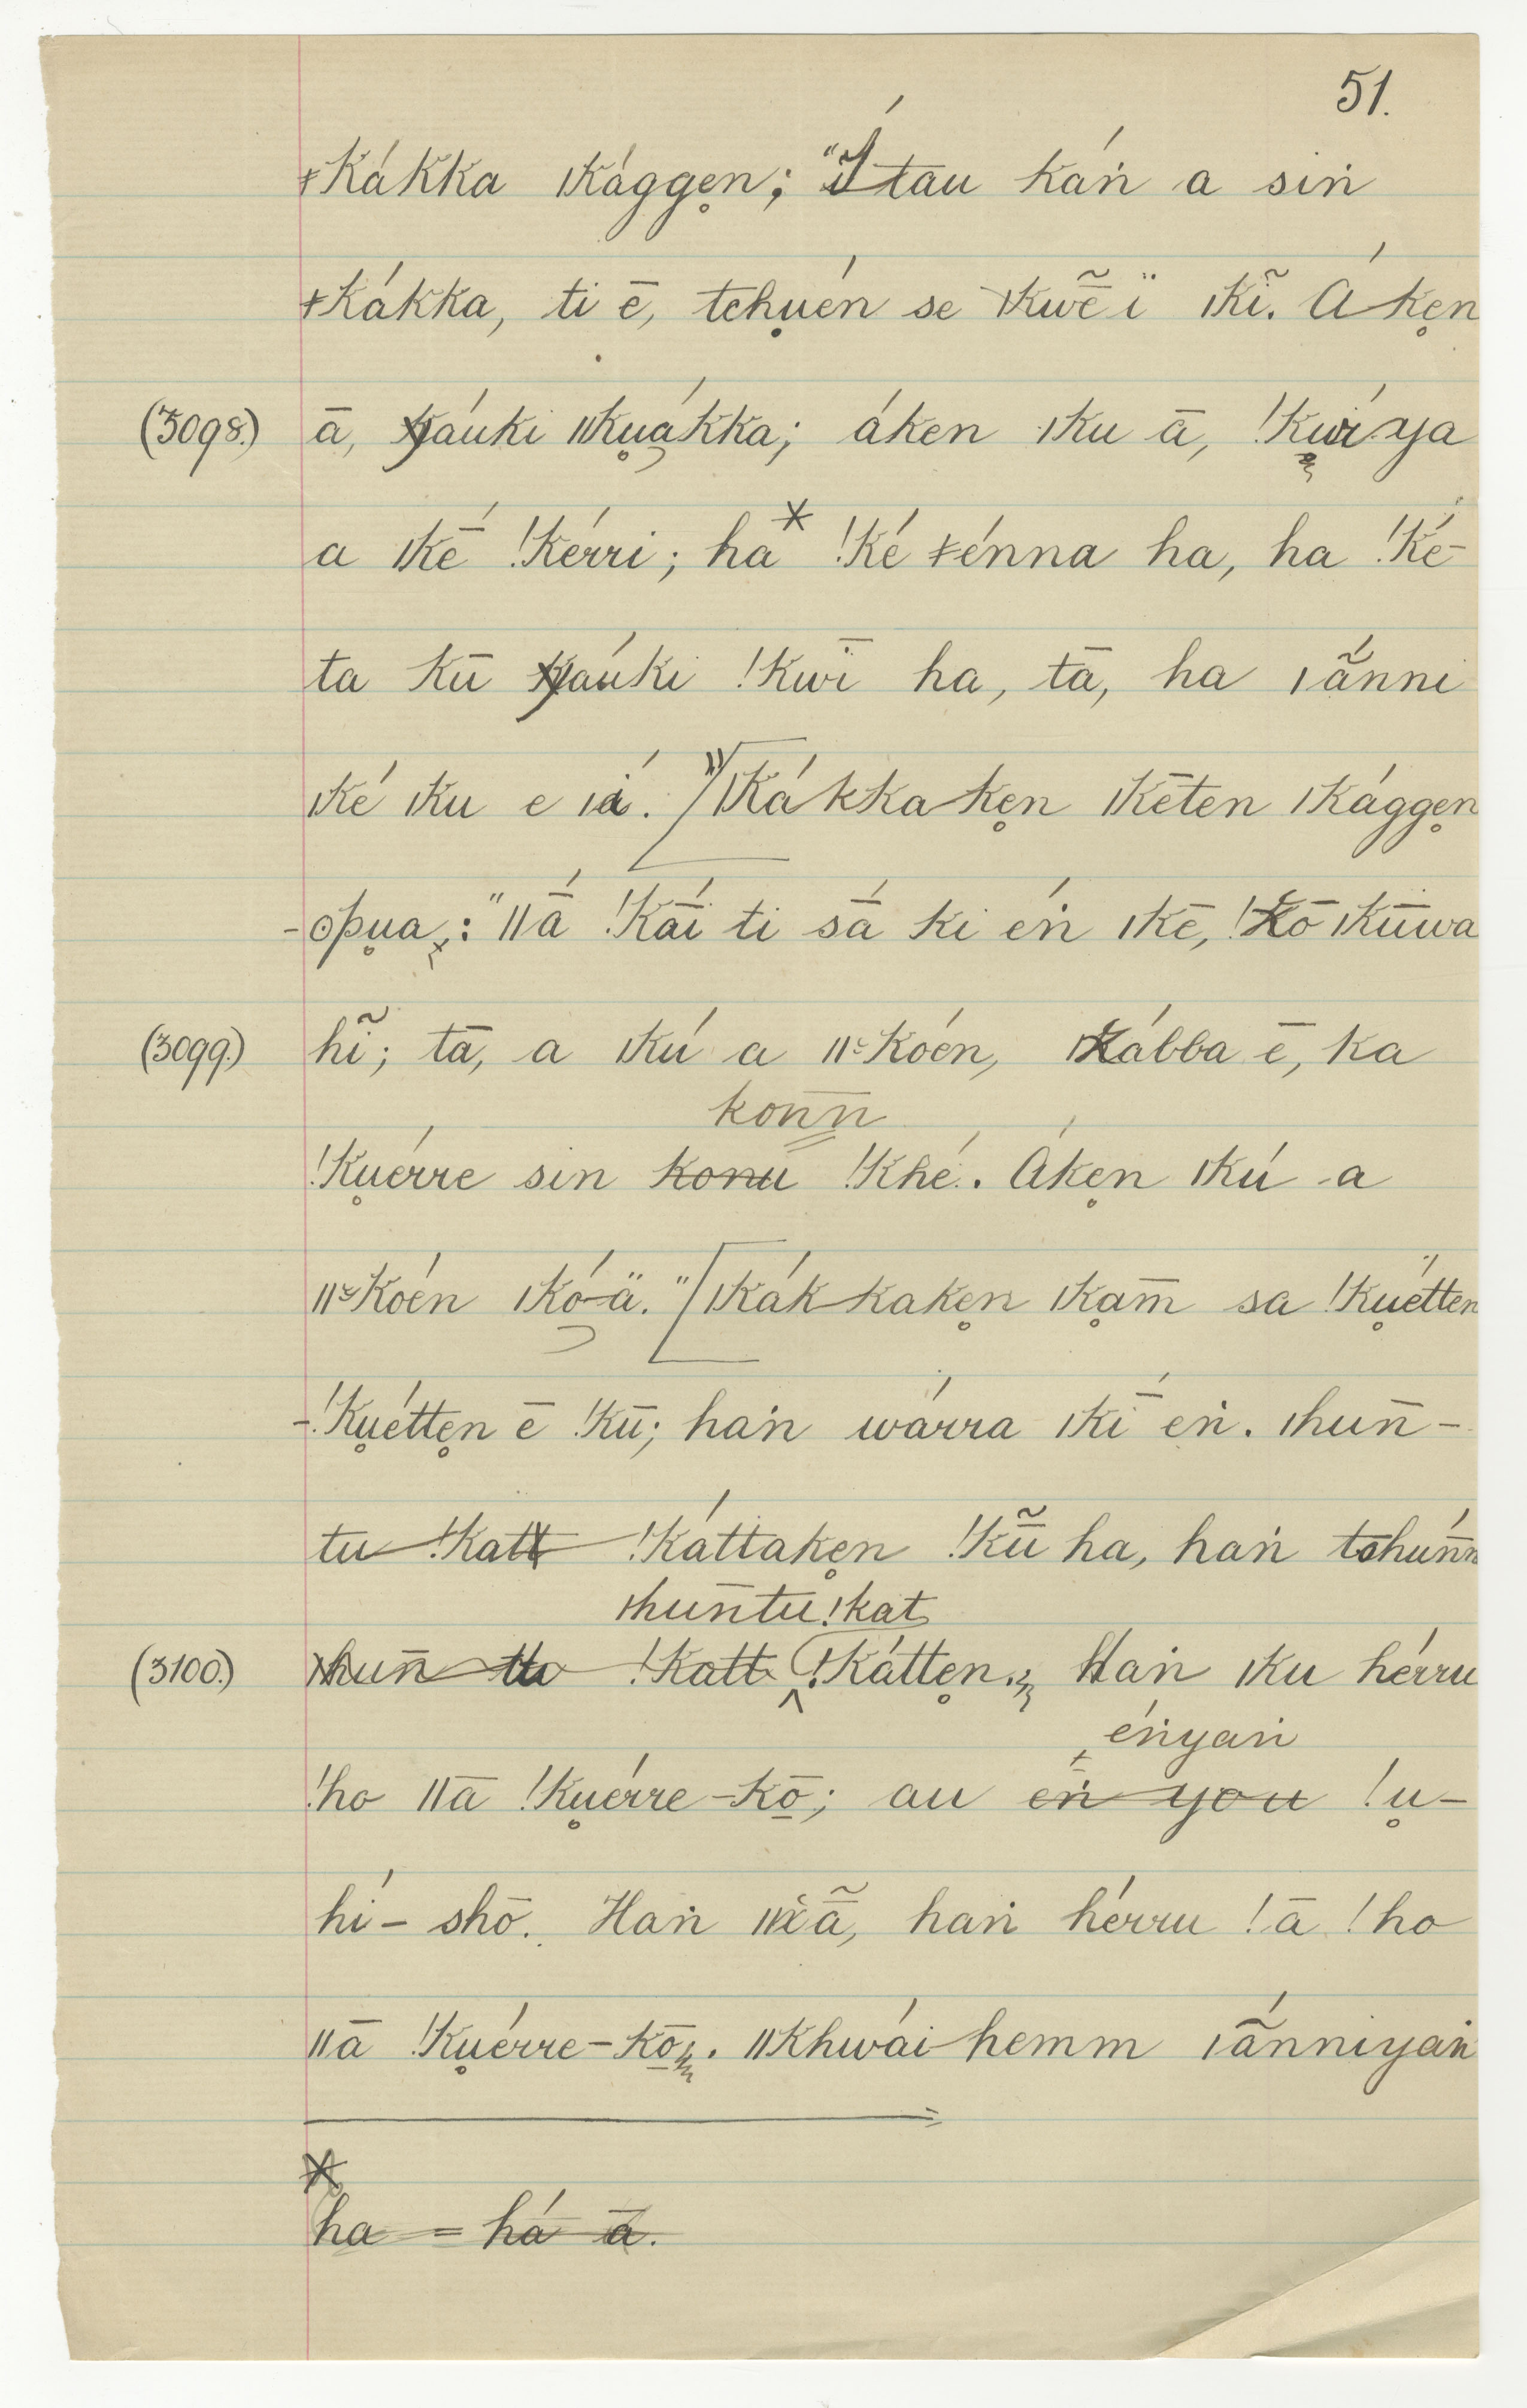 51.
ǂkákka ǀkággen̥; "Í tau káṅ a siṅ
ǂkákka, ti ē, tchu̥én se ǀkwẽ ï ǀkĩ. Á ken̥
(3098.) ā, yáuki ǁku̥ákka; áken ǀku ā, !kwíya
a ǀkē̗ !kérri; hā* !ké ǂénna ha, ha !ké-
ta kū yáuki !kwī ha, tā, ha ǀã́nni
ǀké ǀku e ǀá." [ǀkákkaken̥ ǀkēten ǀkággen̥
-ʘpu̥a: "ǁā́ !kā́i ti sā́ ki éṅ ǀkē, !kō ǀkūwa
(3099.) hĩ; tā, a ǀkú a ǁkóen, ǀkábba ē, ka
konn̄
!ku̥érre sin konu !khé. Áken̥ ǀkú a
ǁkóen ǀkó-ä." [ǀkákkaken̥ ǀkḁm̄ sa !ku̥étten
-!ku̥étten̥ ē !kū; haṅ wárra ǀkī́ eṅ. ǀhun̄-
tu !katt !káttaken̥ !kũ ha, haṅ tchún̄n
ǀhun̄tu!kat
(3100.) ǀhun̄ tu !katt !kátten̥. Haṅ ǀku hérru
éṅyaṅ
!ho ǁā !ku̥érre-kō̱; au eṅ you !u̥-
hí-shō. Haṅ ǁkã, haṅ hérru !ā !ho
ǁā !ku̥érre-kō̱. ǁkhwái-hemm ǀã́nniyaṅ
* ha = há ā.